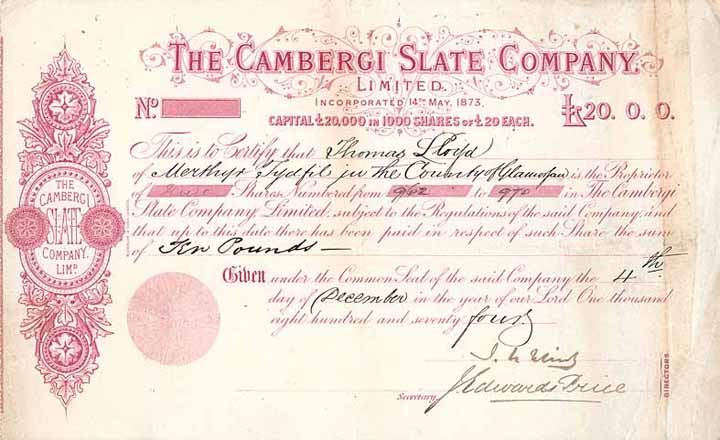 THE CAMBERGI SLATE COMPANY.
LIMITED.
INCORPORATED 14TH MAY, 1873.
No £20. 0. 0.
CAPITAL £20,000 IN 1000 SHARES OF £.20 EACH.
This is to Certify that Thomas Lloyd
of Merthyr Tydfil in the County of Glamorgan is the Proprietor
of Shares Numbered from 962 to 970 in The Cambergi
Slate Company Limited, subject to the Regulations of the said Company, and
that up to this date there has been paid in respect of such Share the sum
of Ten Pounds —
Given under the Common Seal of the said Company the 4th
day of December in the year of our Lord One thousand
eight hundred and seventy four.
J. Edwards Price
Secretary
DIRECTORS
THE
CAMBERGI
SLATE
COMPANY.
LIMD.